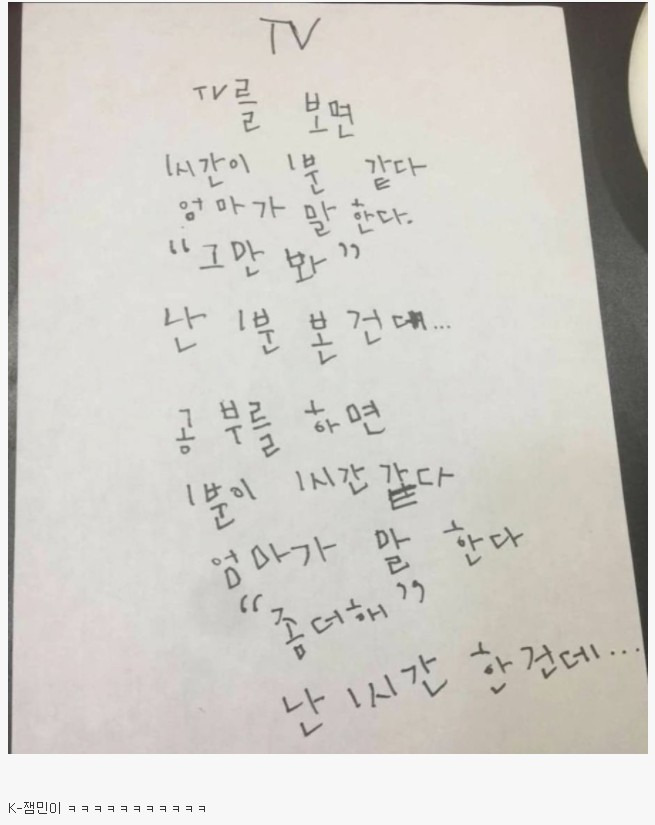 TV
TV를 보면
1시간이 1분 같다
엄마가 말한다.
“그만 봐”
난 1분 본건데...
공부를 하면
1분이 1시간 같다
엄마가 말한다
“좀더해”
난 1시간 한건데...
K-잼민이 ㅋㅋㅋㅋㅋㅋㅋㅋㅋㅋㅋ